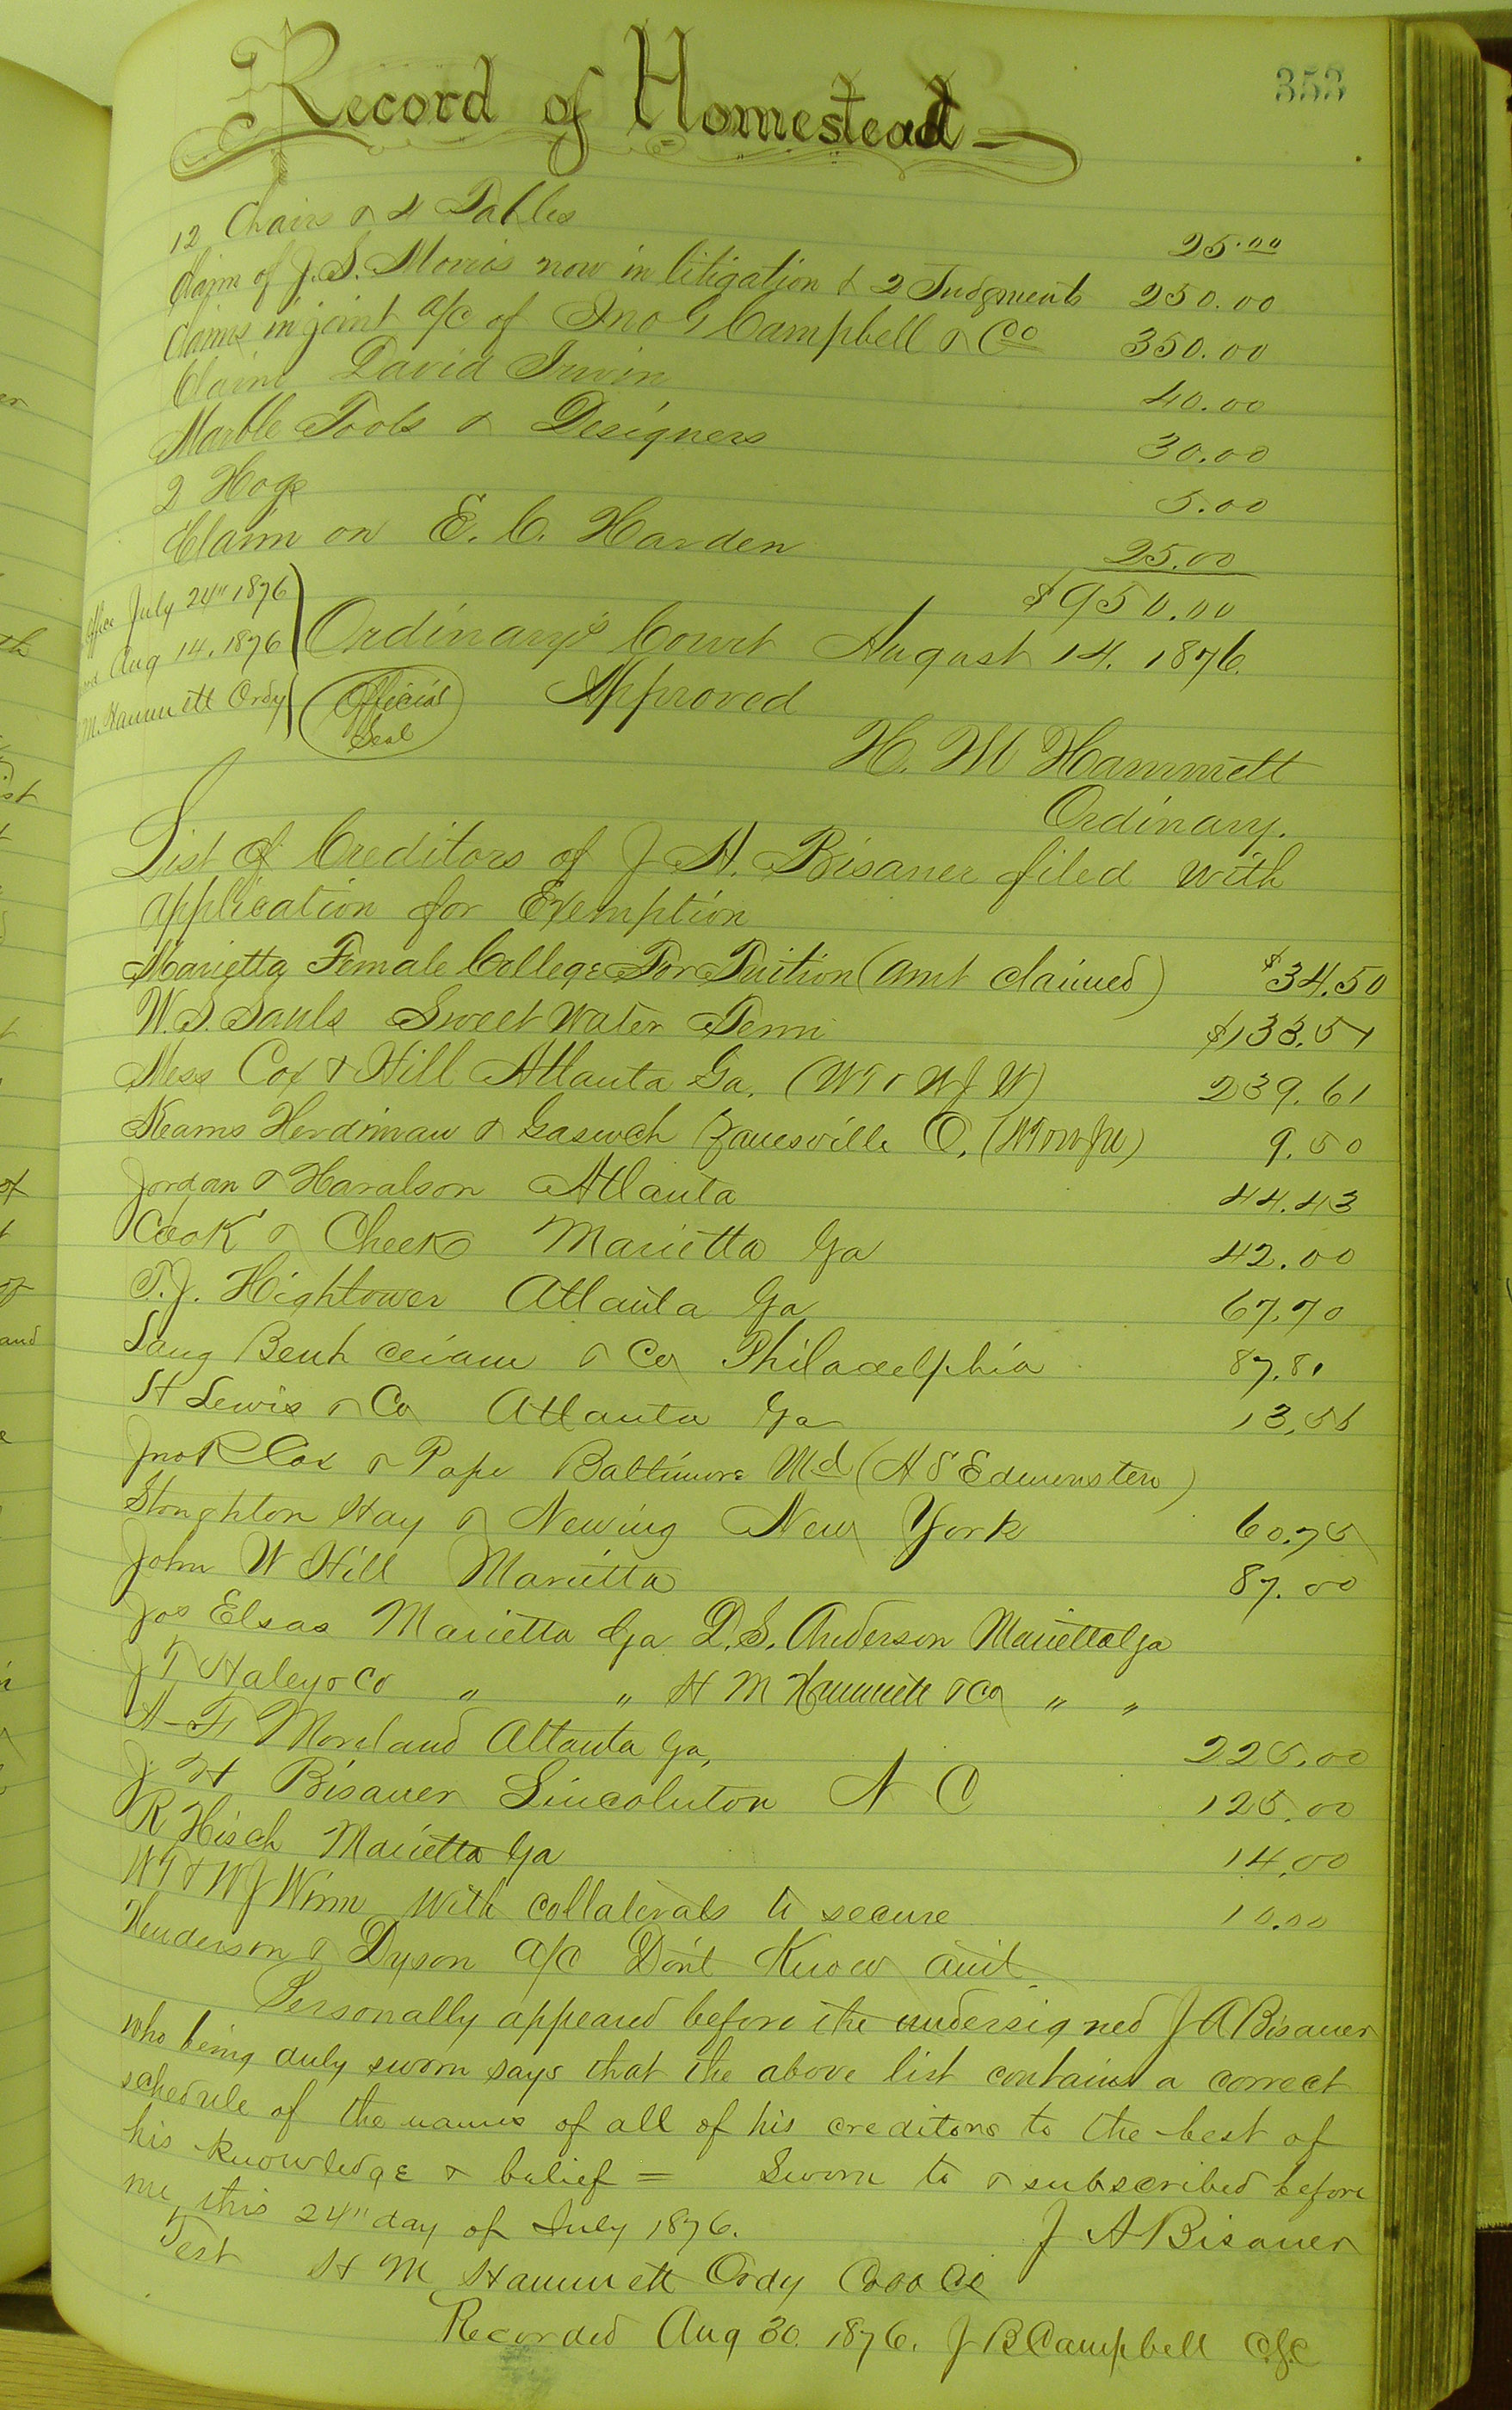 353
Record of Homestead
12 Chairs & 4 Tables 25.00
Claim of J. S. Morris now in litigation & 2 Judgments 250.00
Claims in joint a/c of Jno G Campbell & Co 350.00
Claim David Irwin 40.00
Marble Tools & Designers 30.00
2 Hogs 5.00
Claim on E. C. Harden 25.00
$950.00
office July 24" 1876
Aug 14. 1876
M. Hammett Ordy
Ordinary's Court August 14. 1876.
Official Seal
Approved
H. M Hammett
Ordinary.
List of Creditors of J A. Bisaner filed with
application for Exemption
Marietta Female College For Tuition (amt claimed) $34.50
W. S. Sauls Sweet Water Tenn $133.51
Mess Cox & Hill Atlanta Ga. (WT & WJ W) 239.61
Kearns Herdman & Zanesville O. 9.50
Jordan & Haralson Atlanta 44.43
Cook & Cheek Marietta Ga 42.00
T. J. Hightower Atlanta Ga 67.70
& Co Philadelphia 87.81
H Lewis & Co Atlanta Ga 13.56
Jno R Cox & Pope Baltimore Md (A S Edmonston)
Stoughton Hay & Newing New York 60.75
John W Hill Marietta 87.00
Jos Elsas Marietta Ga D. S. Anderson Marietta Ga
J T Haley & Co " " H M Hammett & Co " "
A. F. Moreland Atlanta Ga. 225.00
J H Bisaner Lincolnton N C 125.00
R Hisch Marietta Ga 14.00
WT & WJ Winn with collaterals to secure 10.00
Henderson & Dyson a/c Don't Know amt.
Personally appeared before the undersigned J A Bisaner
who being duly sworn says that the above list contains a correct
schedule of the names of all of his creditors to the best of
his knowledge & belief = Sworn to & subscribed before
me this 24" day of July 1876. J A Bisaner
Test H M Hammett Ordy Cobb Co
Recorded Aug 30. 1876. J B Campbell C.S.C